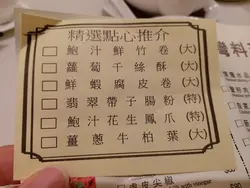 精選點心推介
□ 鮑汁鮮竹卷(大)
□ 蘿蔔千絲酥(大)
□ 鮮蝦腐皮卷(大)
□ 翡翠帶子腸粉(特)
□ 鮑汁花生鳳爪(特)
□ 薑蔥牛柏葉(大)
醬料
□虎皮尖椒